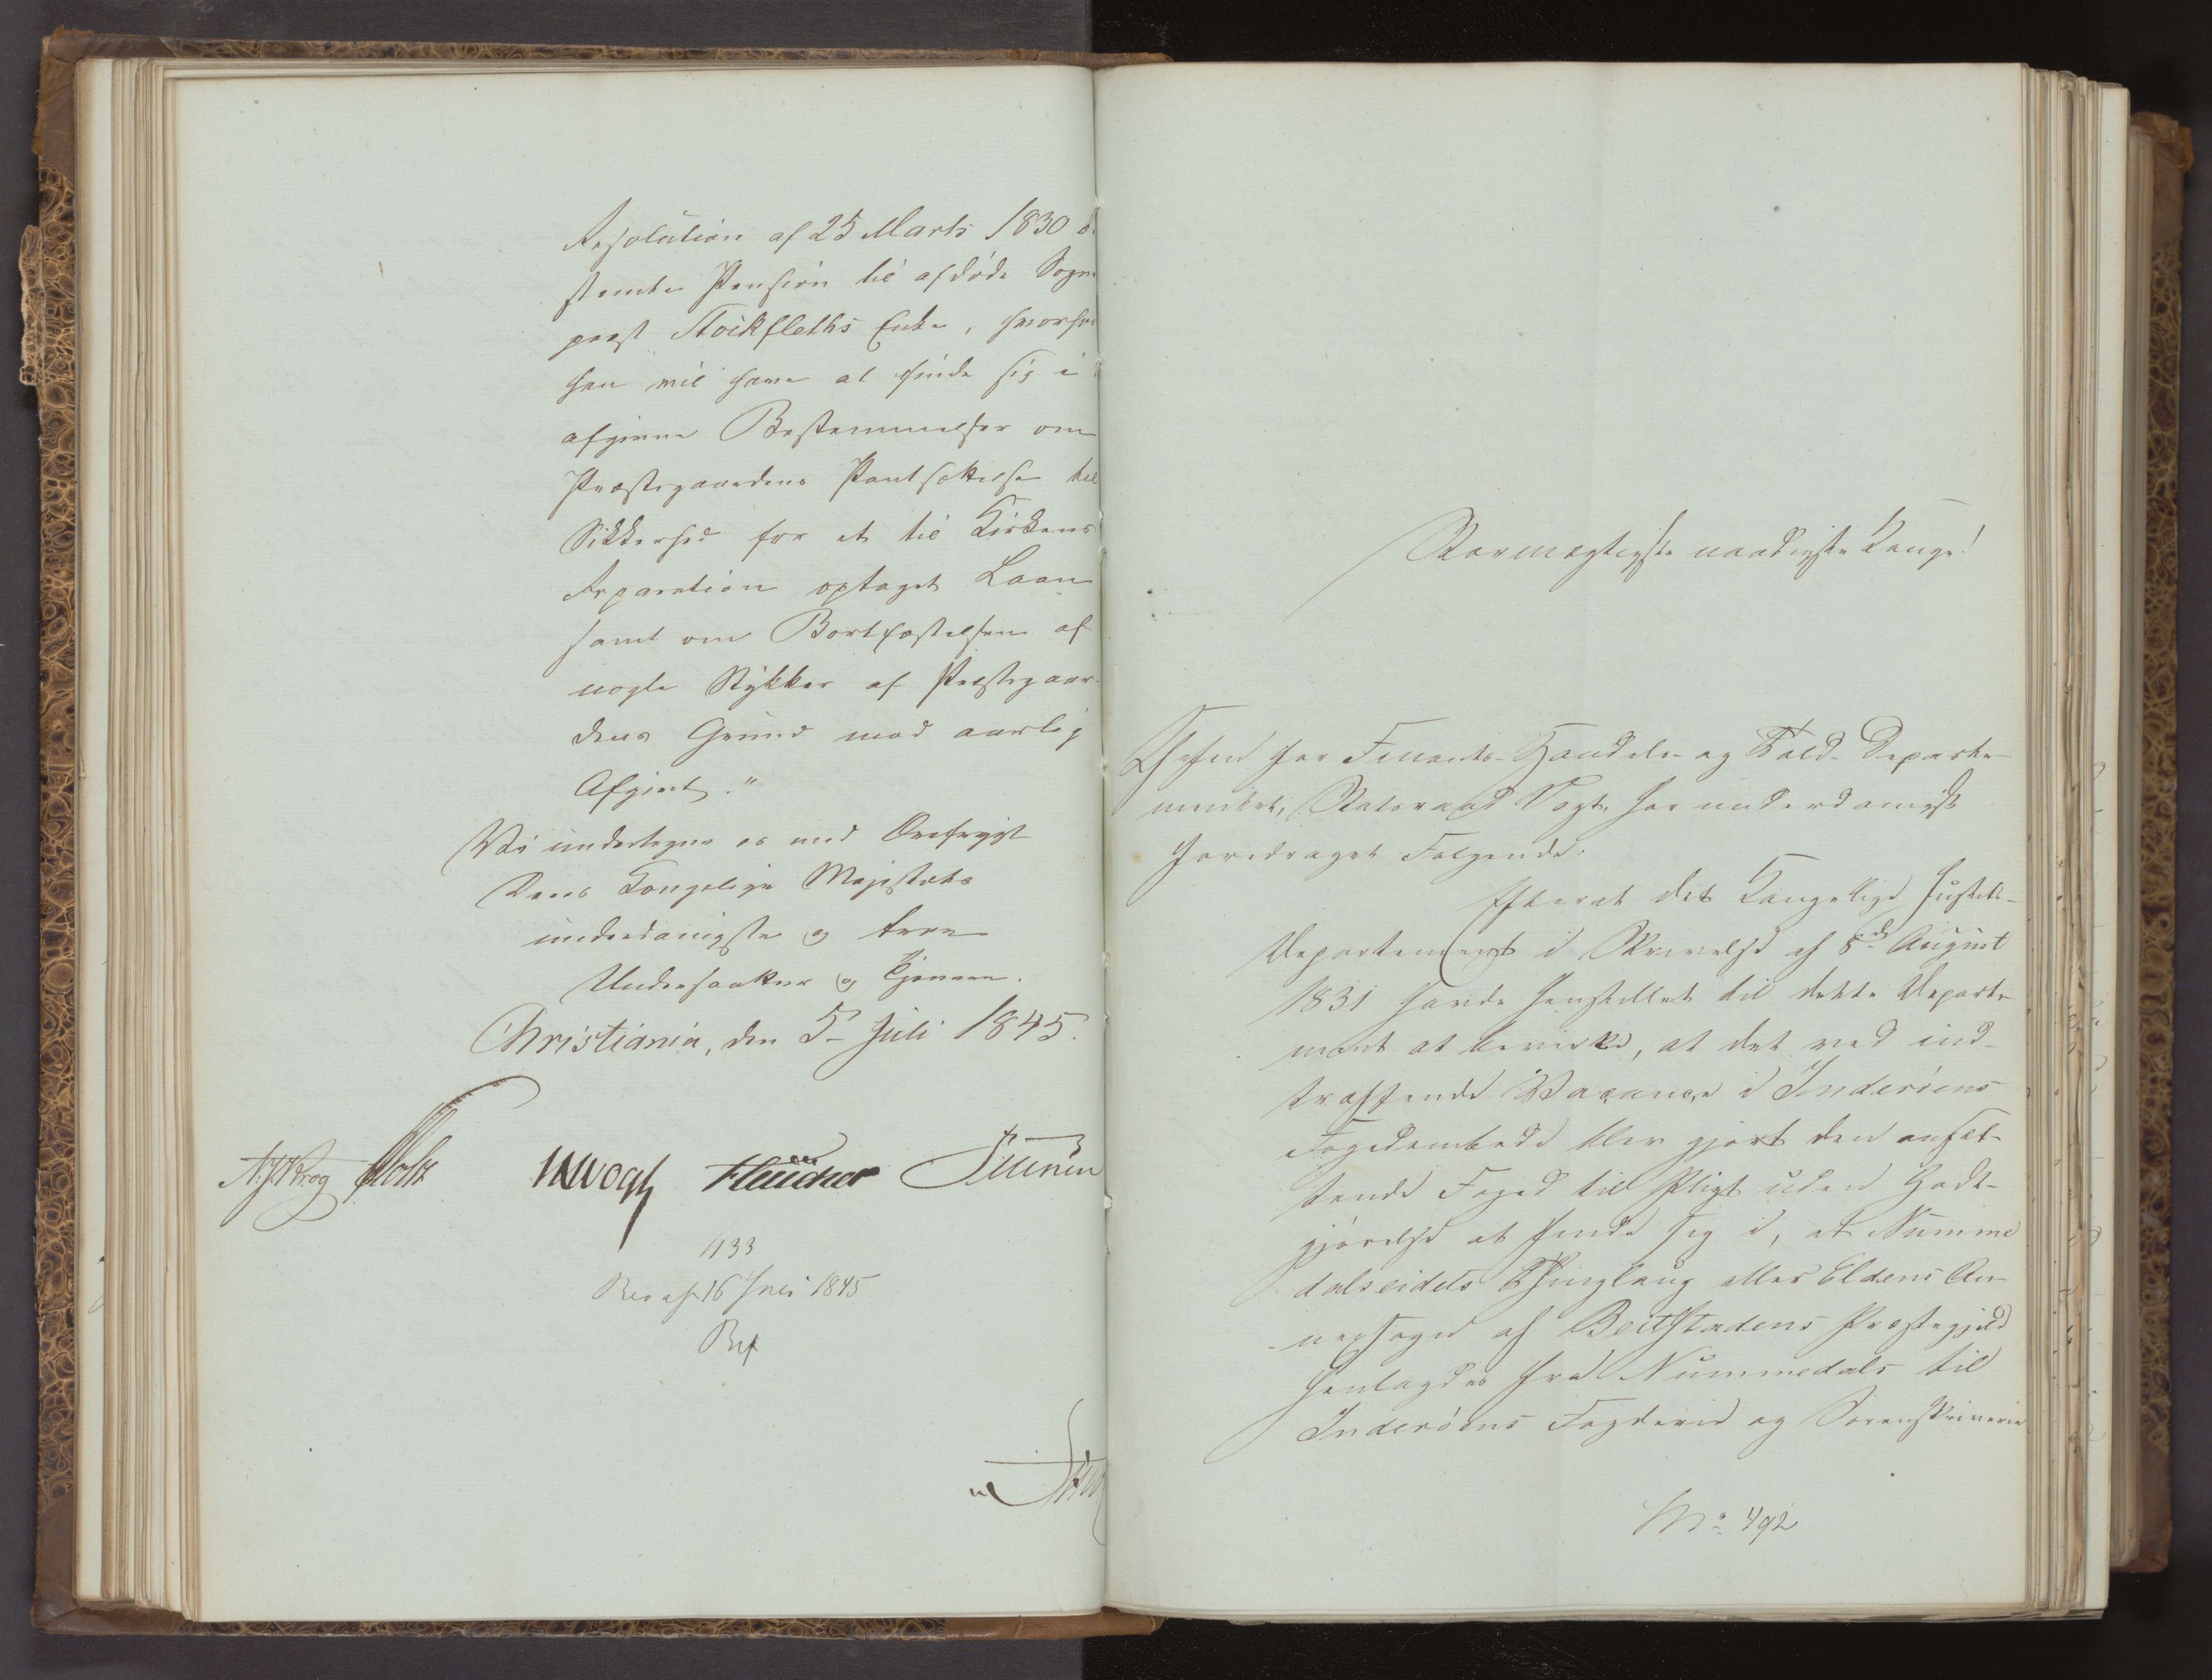 Resolution af 25 Marts 1830 be
stemte Pension til afdøde Sogne
præst Stockfleths Enke, hvorhos
han vil have at finde sig i
afgivne Bestemmelser om
Præstegaardens Pantsættelse til
Sikkerhed for et til Kirkens
Reparation optaget Laan
samt om Bortfæstelsen af
nogle Stykker af Præstegaar-
dens Grund mod aarlig
Afgivt."
Vi undertegne os med Ærefrygt
Deres Kongelige Majestæts
underdanigste og troe
Undersaatter og Tjenere.
Christiania, den 5 Juli 1845.
N. J. Krog Holst JHVogt
1133
Res af 16 Juli 1845
Stormægtigste naadigste Konge!
Chefen for Finants- Handels- og Told- Departe-
mentet, Statsraad Vogt, har underdanigst
foredraget Følgende:
Efterat det Kongelige Justits-
Departement i Skrivelse af 8de August
1831 havde henstillet til dette Departe-
ment at bevirke, at det ved ind-
træffende Vacance i Inderøens
Fogedembede blev gjort den ansæt-
tende Foged til Pligt uden Godt-
gjørelse at finde sig i, at Numme
dalseidets Thinglaug eller Eldens An-
nexsogn af Beitstadens Præstegjeld
henlagdes fra Nummedals til
Inderøens Fogderie og Sorenskriverie
No 492